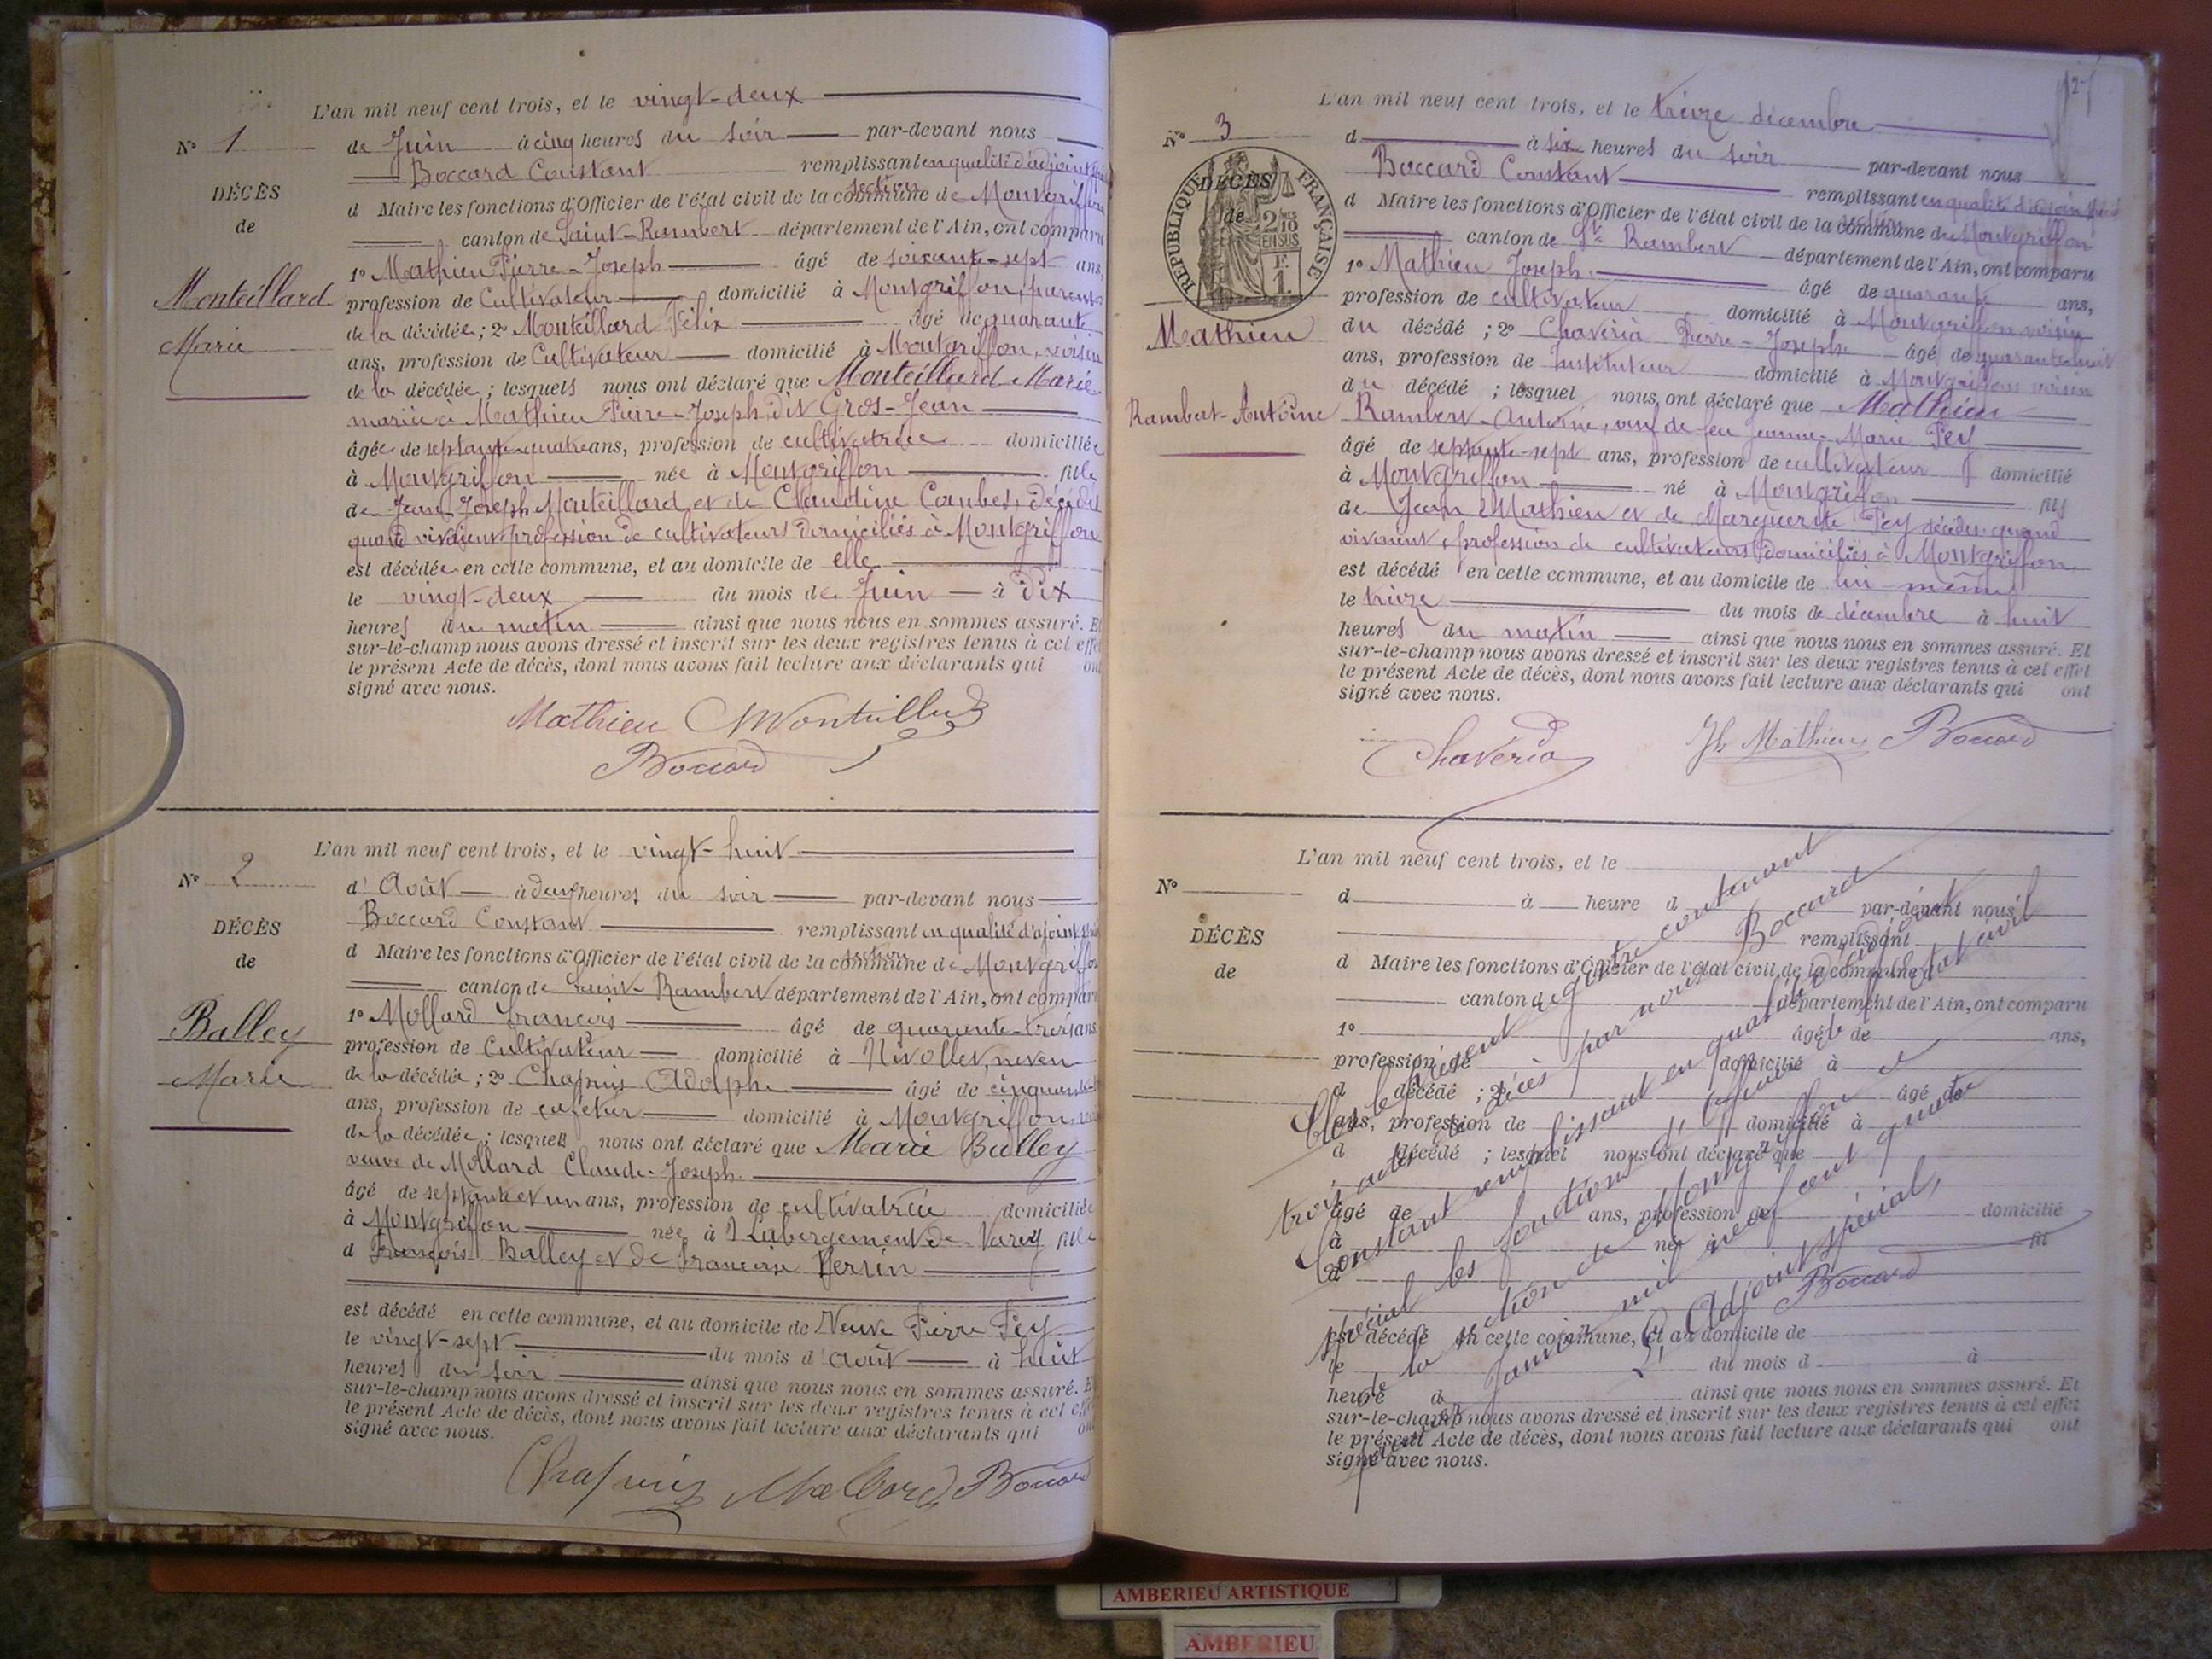 L'an mil neuf cent trois, et le vingt-deux
N° 1 de Juin à cinq heures du soir par-devant nous
Boccard Constant remplissant en qualité d'adjoint
DÉCÈS
d Maire les fonctions d'Officier de l'état civil de la commune section de Montgriffon
de
canton de Saint-Rambert département de l'Ain, ont comparu
1° Mathieu Pierre-Joseph âgé de soixante-sept ans,
Monteillard
profession de Cultivateur domicilié à Montgriffon, parent
de la décédée; 2° Monteillard Félix âgé de quarante
Marie
ans, profession de Cultivateur domicilié à Montgriffon, voisin
de la décédée; lesquels nous ont déclaré que Monteillard Marie
mariée à Mathieu Pierre-Joseph dit Gros-Jean
âgée de septante-quatre ans, profession de cultivatrice domiciliée
à Montgriffon née à Montgriffon fille
de Jean-Joseph Monteillard et de Claudine Combes, décédés
quand vivaient profession de cultivateurs domiciliés à Montgriffon
est décédée en cette commune, et au domicile de elle
le vingt-deux du mois de Juin à dix
heures du matin ainsi que nous nous en sommes assuré. Et
sur-le-champ nous avons dressé et inscrit sur les deux registres tenus à cet effet
le présent Acte de décès, dont nous avons fait lecture aux déclarants qui ont
signé avec nous.
Mathieu Monteillard
Boccard
L'an mil neuf cent trois, et le vingt-huit
N° 2 d'Août à deux heures du soir par-devant nous
Boccard Constant remplissant en qualité d'ajoint
DÉCÈS
d Maire les fonctions d'Officier de l'état civil de la commune section de Montgriffon
de
canton de Saint-Rambert département de l'Ain, ont comparu
1° Mollard François âgé de quarante-trois ans
Balley
profession de Cultivateur domicilié à Nivollet, neveu
de la décédée; 2° Chapuis Adolphe âgé de cinquante
Marie
ans, profession de cafetier domicilié à Montgriffon
de la décédée; lesquels nous ont déclaré que Marie Balley
veuve de Mollard Claude-Joseph
âgé de septante et un ans, profession de cultivatrice domiciliée
à Montgriffon née à Labergement-de-Varey fille
d François Balley et de Françoise
est décédé en cette commune, et au domicile de Veuve Pierre Pey
le vingt-sept du mois d'août à huit
heures du soir ainsi que nous nous en sommes assuré. Et
sur-le-champ nous avons dressé et inscrit sur les deux registres tenus à cet effet
le présent Acte de décès, dont nous avons fait lecture aux déclarants qui ont
signé avec nous.
Chapuis Mollard Boccard
127
L'an mil neuf cent trois, et le treize décembre
N° 3 d à six heures du soir par-devant nous
Boccard Constant remplissant en qualité d'adjoint
RÉPUBLIQUE FRANÇAISE
2/10 EN SUS
F. 1.
DÉCÈS
de
d Maire les fonctions d'Officier de l'état civil de la commune section de Montgriffon
canton de St Rambert département de l'Ain, ont comparu
1° Mathieu Joseph âgé de quarante ans,
profession de cultivateur domicilié à Montgriffon voisin
Mathieu
du décédé; 2° Chavéria Pierre-Joseph âgé de quarante-huit
ans, profession de Instituteur domicilié à Montgriffon voisin
du décédé; lesquel nous ont déclaré que Mathieu
Rambert-Antoine
Rambert-Antoine, veuf de feu Jeanne-Marie Pey
âgé de septante-sept ans, profession de cultivateur domicilié
à Montgriffon né à Montgriffon fils
de Jean Mathieu et de Marguerite Pey décédés quand
vivaient profession de cultivateurs domiciliés à Montgriffon
est décédé en cette commune, et au domicile de lui-même
le treize du mois de décembre à huit
heures du matin ainsi que nous nous en sommes assuré. Et
sur-le-champ nous avons dressé et inscrit sur les deux registres tenus à cet effet
le présent Acte de décès, dont nous avons fait lecture aux déclarants qui ont
signé avec nous.
Chavéria Jh Mathieu Boccard
L'an mil neuf cent trois, et le
N° d à heure d par-devant nous
remplissant
DÉCÈS
d Maire les fonctions d'Officier de l'état civil de la commune d
de
canton d département de l'Ain, ont comparu
1° âgé de ans,
profession de domicilié à
d décédé; 2° âgé de
ans, profession de domicilié à
d décédé; lesquel nous ont déclaré que
âgé de ans, profession de domicilié
à né à fil
d
est décédé en cette commune, et au domicile de
le du mois d à
heure d ainsi que nous nous en sommes assuré. Et
sur-le-champ nous avons dressé et inscrit sur les deux registres tenus à cet effet
le présent Acte de décès, dont nous avons fait lecture aux déclarants qui ont
signé avec nous.
Clos le présent registre contenant
trois actes de décès par nous Boccard
Constant remplissant en qualité d'adjoint
spécial les fonctions d'officier de l'état civil
de la section de Montgriffon le
premier Janvier mil neuf cent quatre
L'Adjoint spécial,
Boccard
AMBERIEU ARTISTIQUE
AMBERIEU